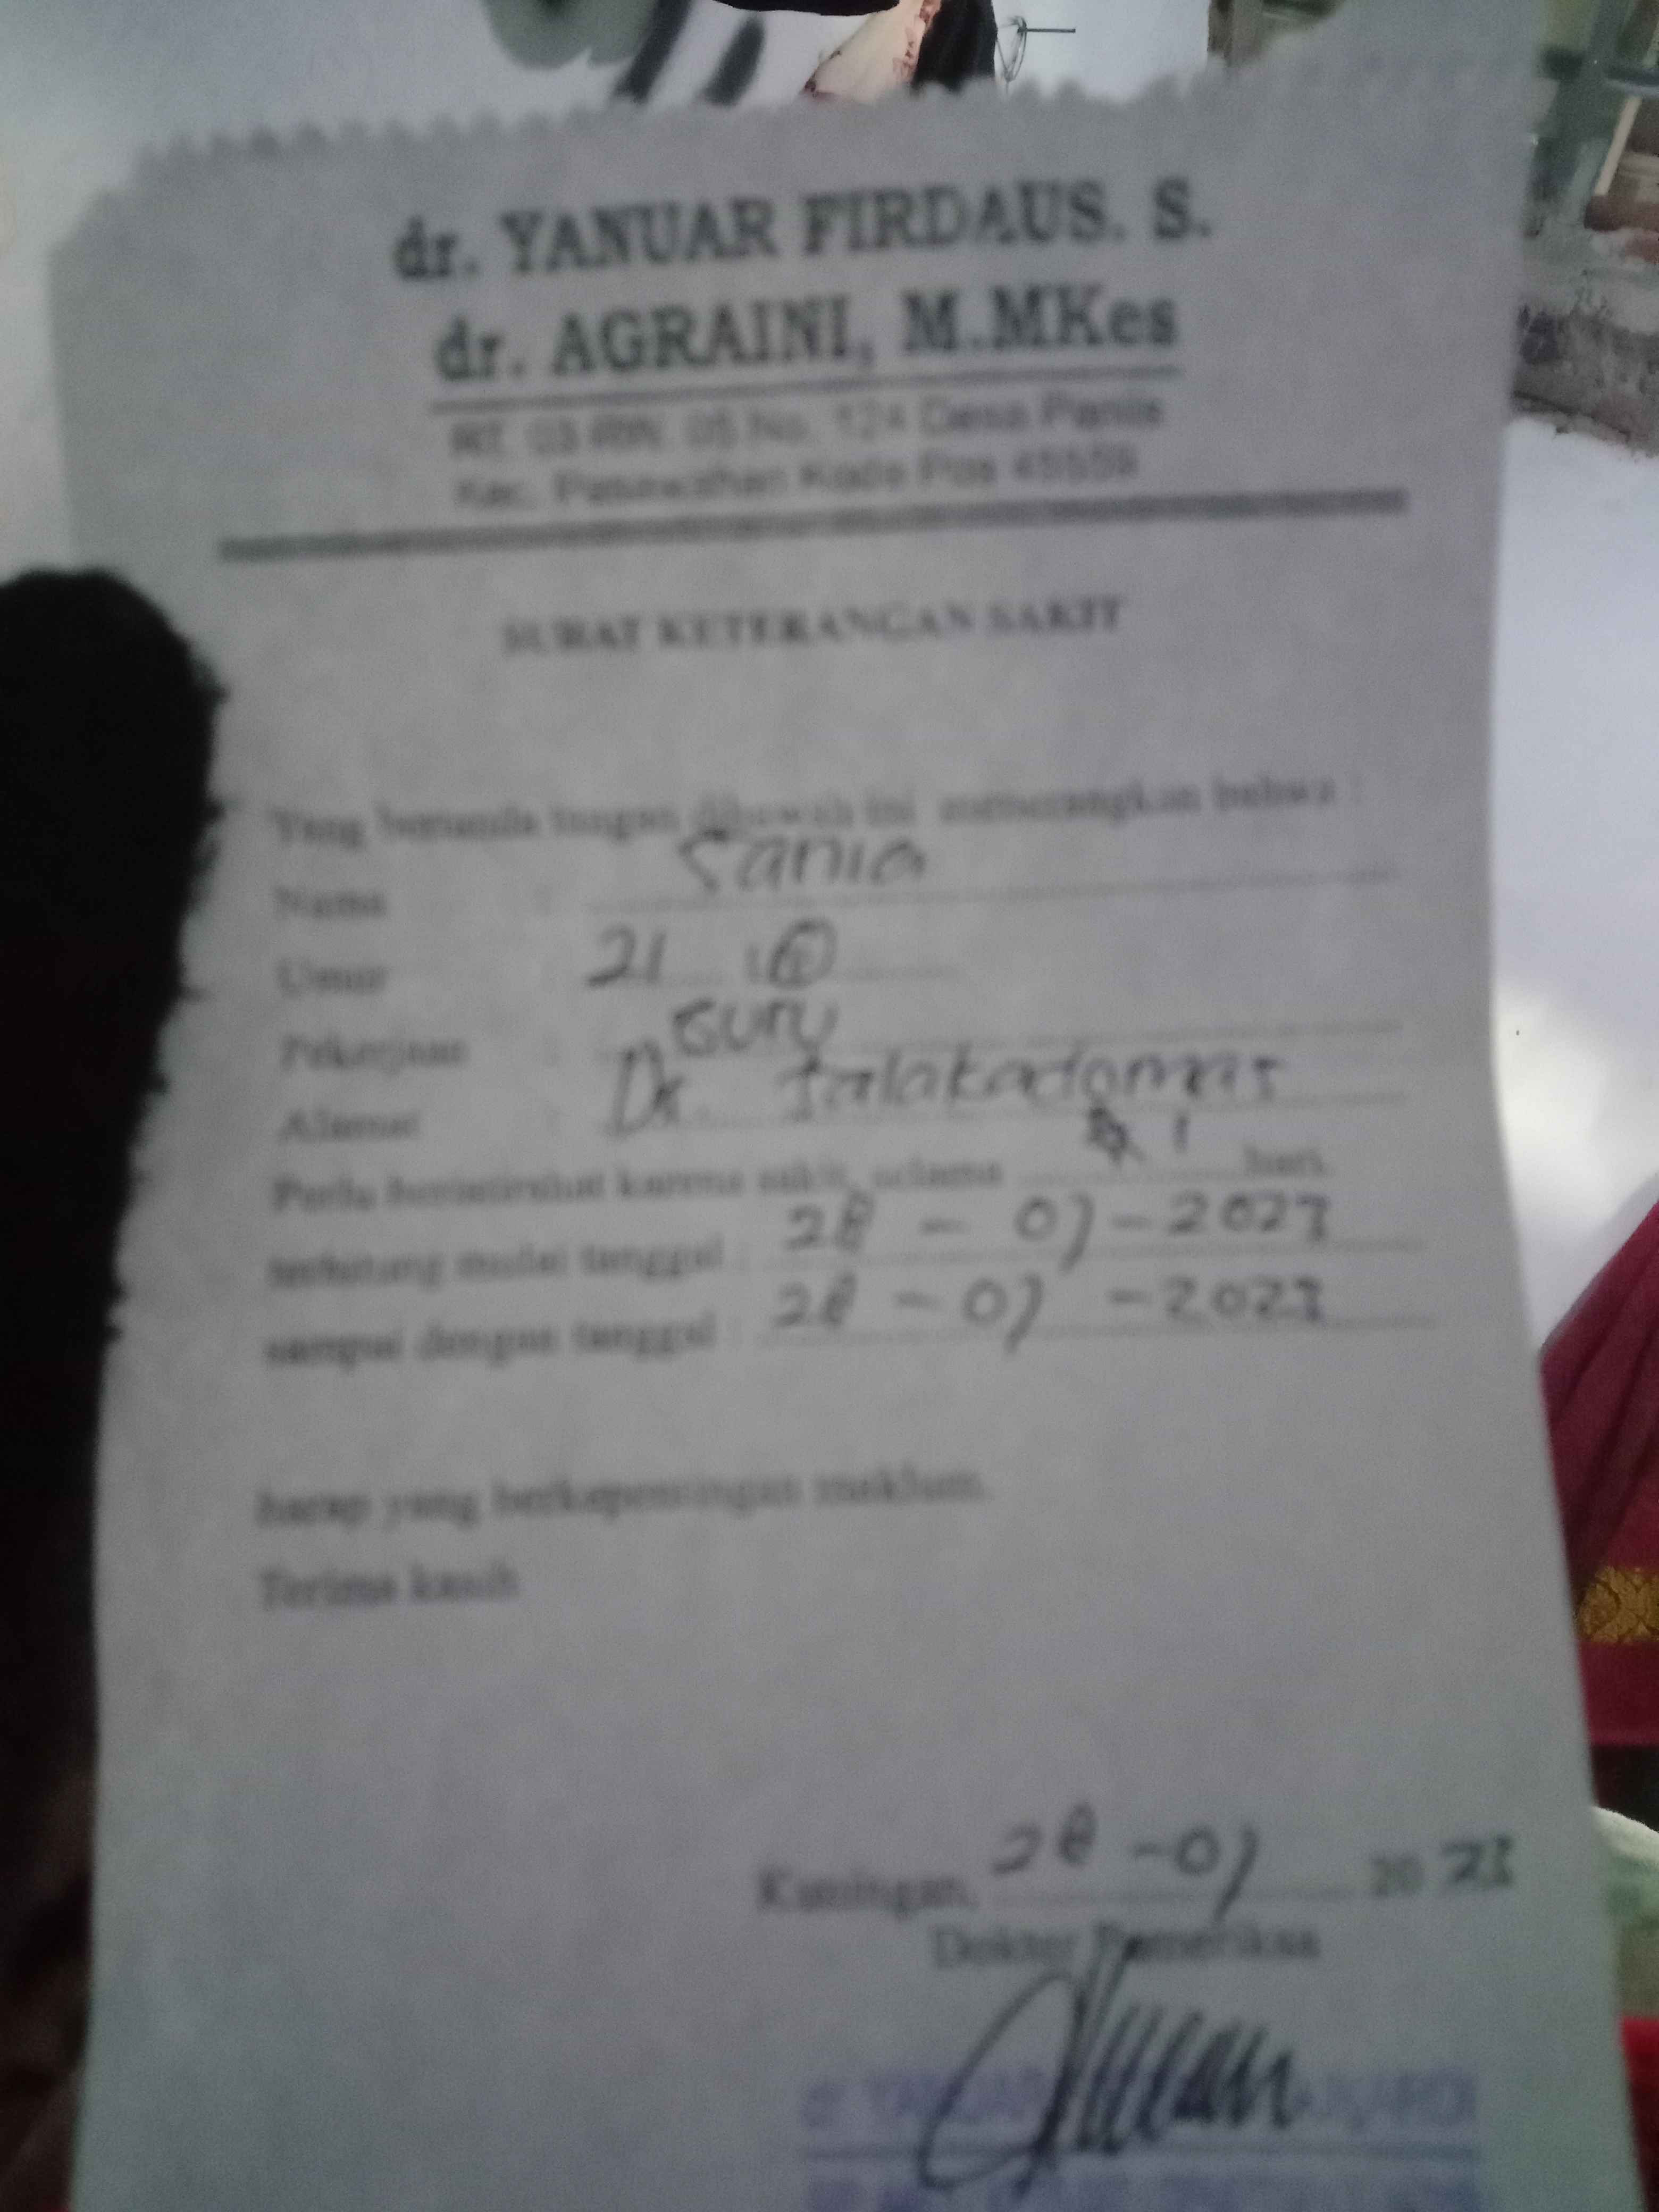 dr. YANUAR FIRDAUS. S.
dr. AGRAINI, M.MKes
RT. 03 RW. 05 No. 124 Desa Paniis
Kec. Pasawahan Kode Pos 45559
SURAT KETERANGAN SAKIT
Yang bertanda tangan dibawah ini menerangkan bahwa :
Nama : Sania
Umur : 21
Pekerjaan : Guru
Alamat : Ds. Salakadomas
Perlu beristirahat karena sakit, selama 1 hari.
terhitung mulai tanggal : 28 - 07 - 2023
sampai dengan tanggal : 28 - 07 - 2023
harap yang berkepentingan maklum.
Terima kasih
Kuningan, 28 - 07 2023
Dokter Pemeriksa
dr YANUAR